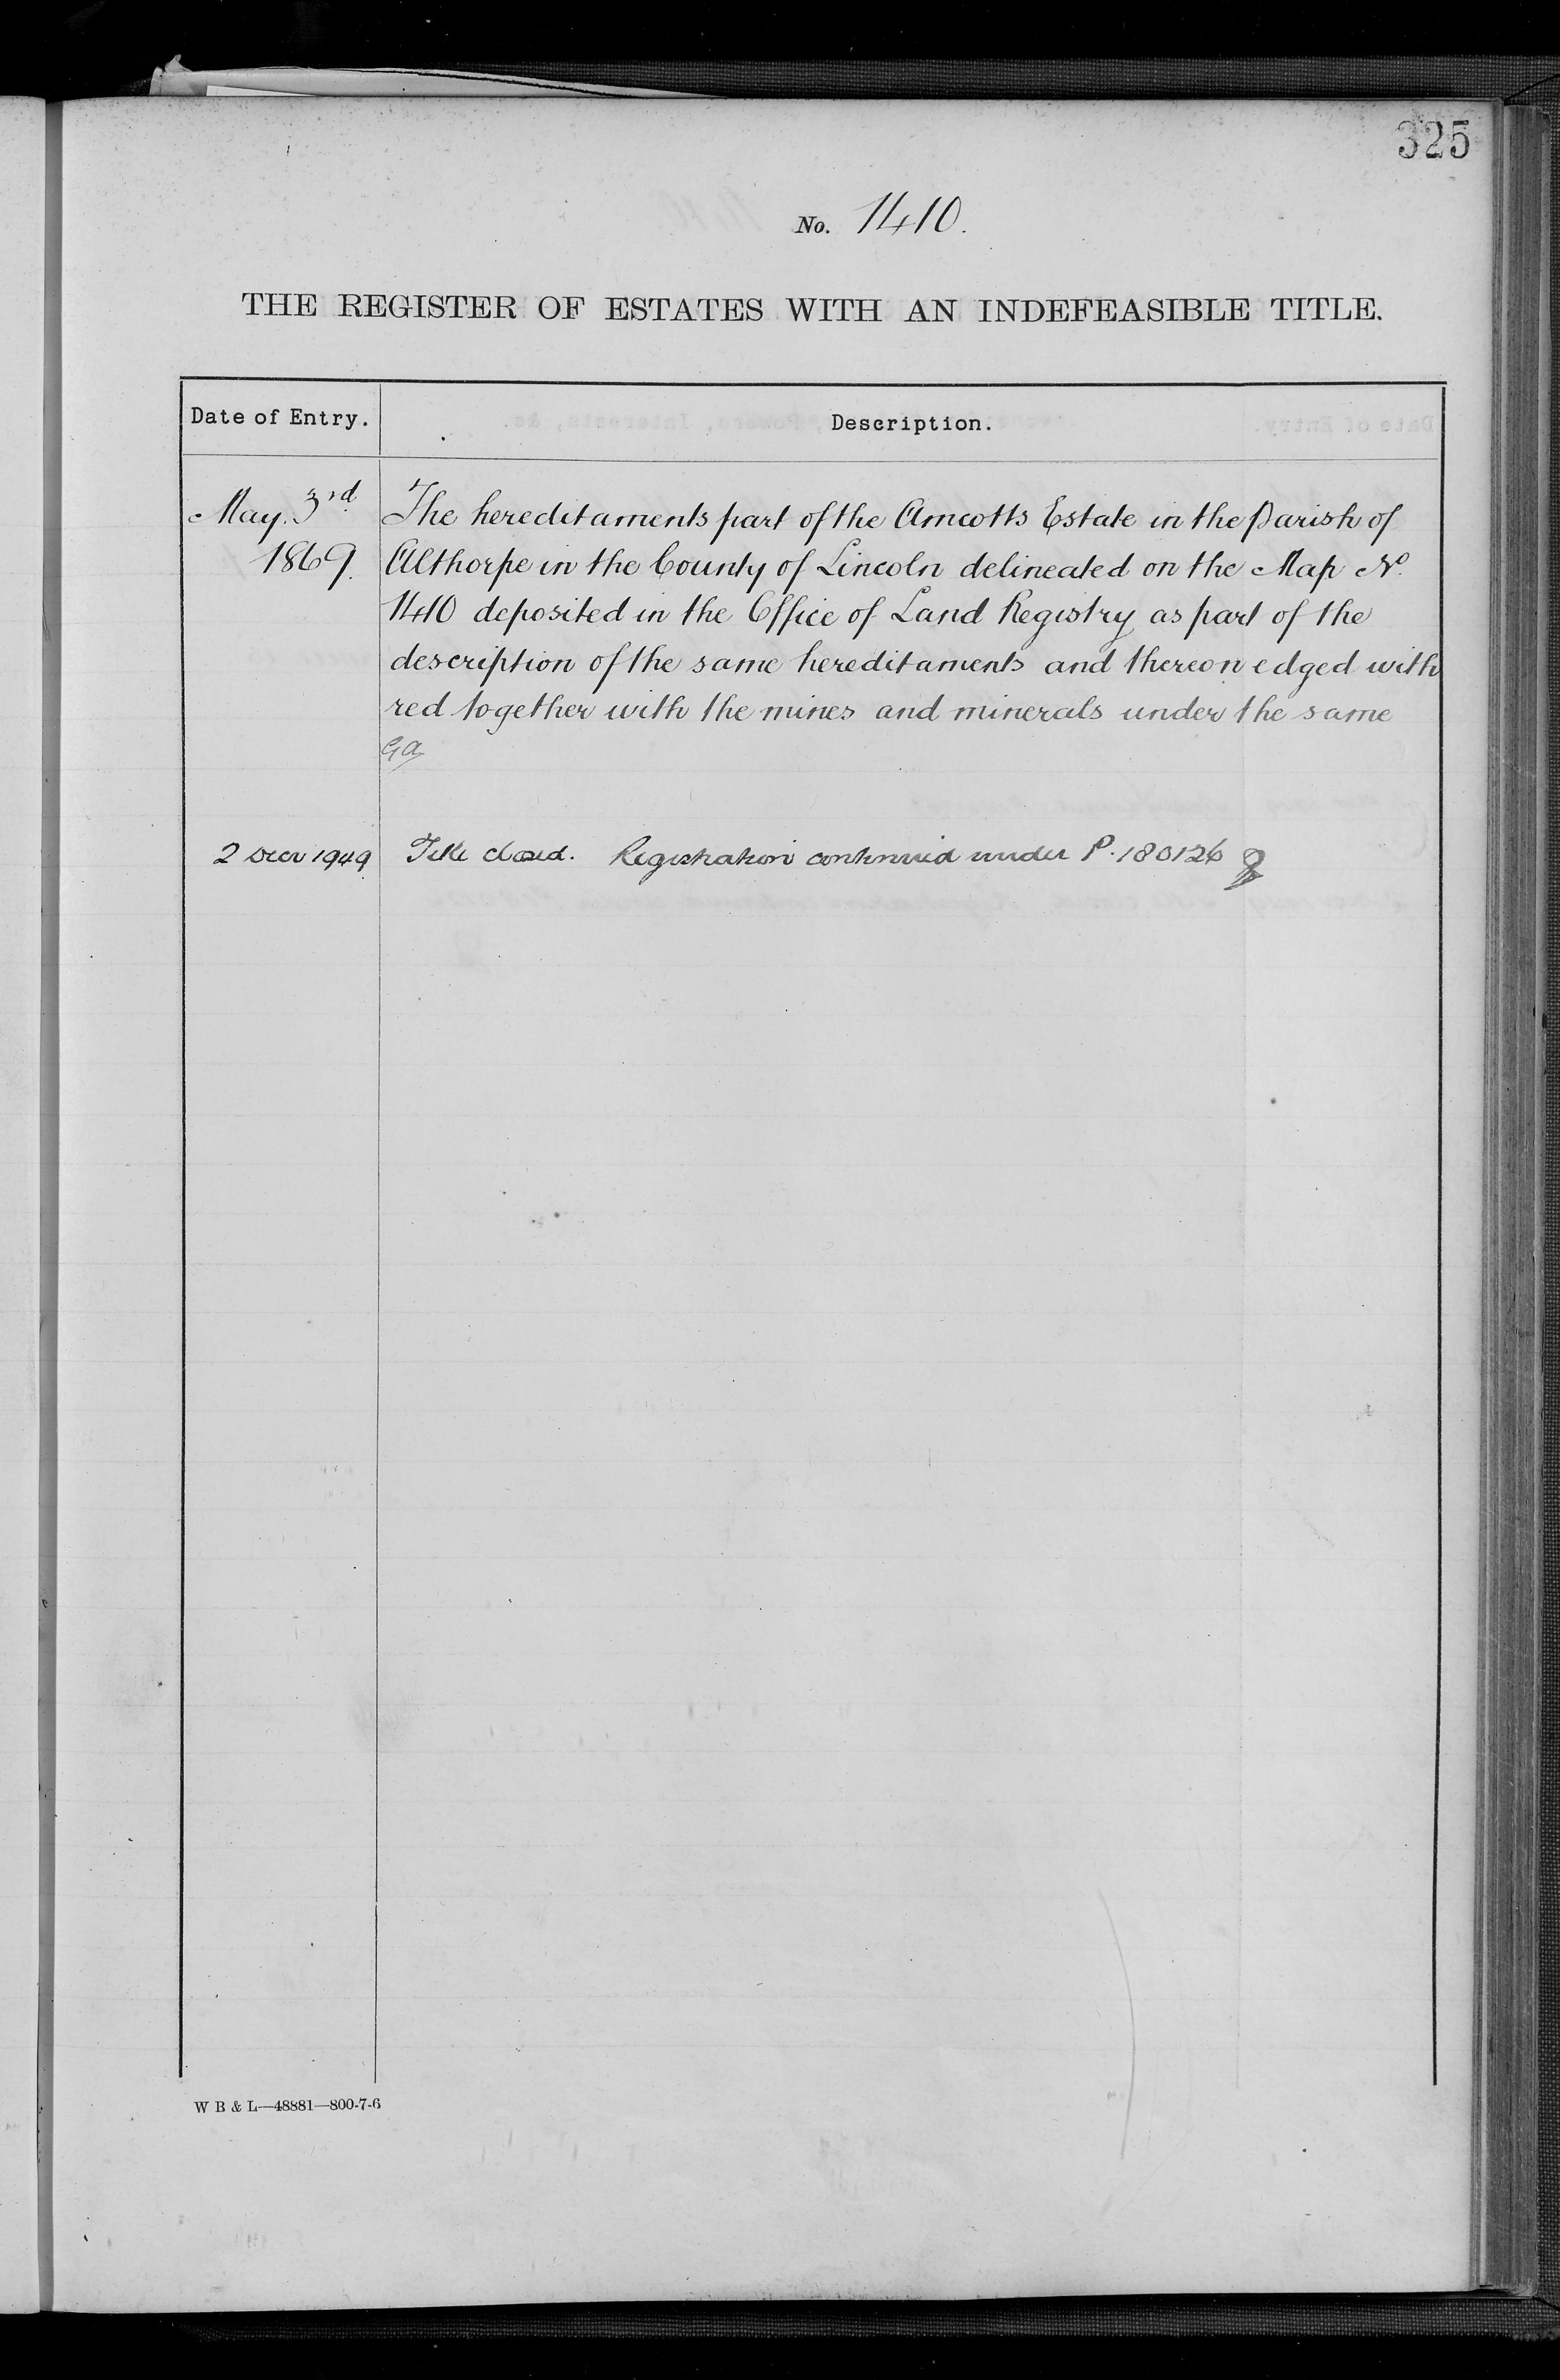 325
No. 1410.
THE REGISTER OF ESTATES WITH AN INDEFEASIBLE TITLE.
Date of Entry.
Description.
May. 3rd 1869.
The hereditaments part of the Amcotts Estate in the Parish of
Althorpe in the County of Lincoln delineated on the Map No.
1410 deposited in the Office of Land Registry as part of the
description of the same hereditaments and thereon edged with
red together with the mines and minerals under the same
GA
2 Decr 1949 Title closed. Registration continued under P.180126
W B & L—48881—800-7-6